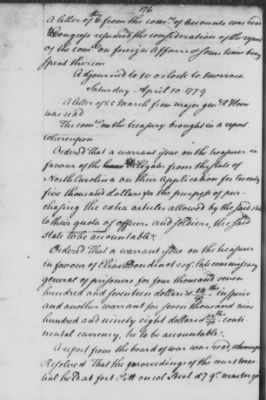 176
A letter of 6 from the com.rs of accounts was read
Congress resumed the consideration of the report
of the com.ee on foreign Affairs & some time being
spent thereon
Adjourned to 10 o Clock to Morrow
Saturday April 10. 1779
A letter of 22 March from major gen.l
was read
The com.ee on the treasury brought in a report
whereupon
Ordered That a warrant issue on the treasurer in
favour of the delegates from the state of
North Carolina on their Application for twenty
five thousand dollars for the purpose of pur-
chasing the extra articles allowed by the said state
to their quota of officers and soldiers, the said
state to be accountable.
Ordered That a warrant issue on the treasurer
in favour of Elias Boudinot esq.r late commissary
general of prisoners for four thousand seven
hundred and seventeen dollars & in specie
and another warrant for seven thousand nine
hundred and ninety eight dollars conti
nental currency, he to be accountable.
A report from the board of war was read, whereupon
Resolved That the proceedings of the court mar
tial held at fort Pitt on col Steel d q.r master gen